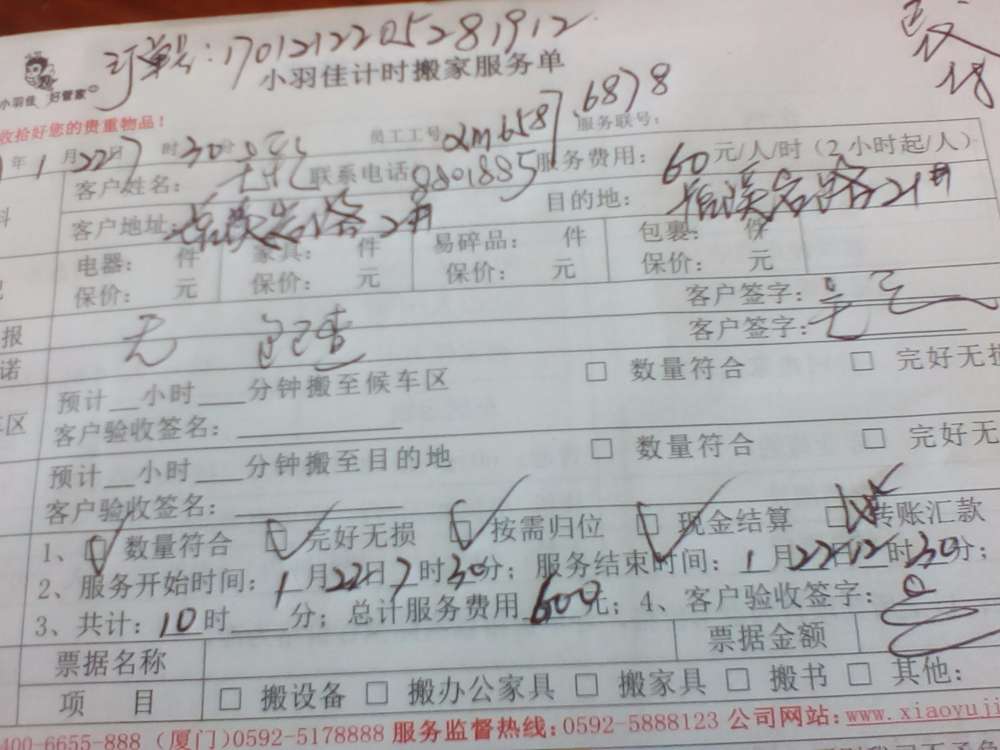 订单号:1701212205281912
小羽佳计时搬家服务单
小羽佳 好管家
收拾好您的贵重物品!
员工工号 2m6587.6878 服务联号:
年1月22日7时30分
客户姓名: 联系电话 8801885 服务费用:60元/人/时(2小时起/人)
客户地址: 目的地:
电器: 件 家具: 件 易碎品: 件 包裹: 件
保价: 元 保价: 元 保价: 元 保价: 元
报 客户签字:
诺 无 客户签字:
预计__小时___分钟搬至候车区 □ 数量符合 □ 完好无
车区 客户验收签名:
预计__小时___分钟搬至目的地 □ 数量符合 □ 完好无
客户验收签名:
1、☑ 数量符合 ☑ 完好无损 ☑ 按需归位 ☑ 现金结算 □ 转账汇款
2、服务开始时间:1月22日7时30分;服务结束时间:1月22日12时30分;
3、共计:10时___分;总计服务费用600元;4、客户验收签字:
票据名称 票据金额
项 目 □ 搬设备 □ 搬办公家具 □ 搬家具 □ 搬书 □ 其他:
400-6655-888 (厦门)0592-5178888 服务监督热线:0592-5888123 公司网站:www.xiaoyuji